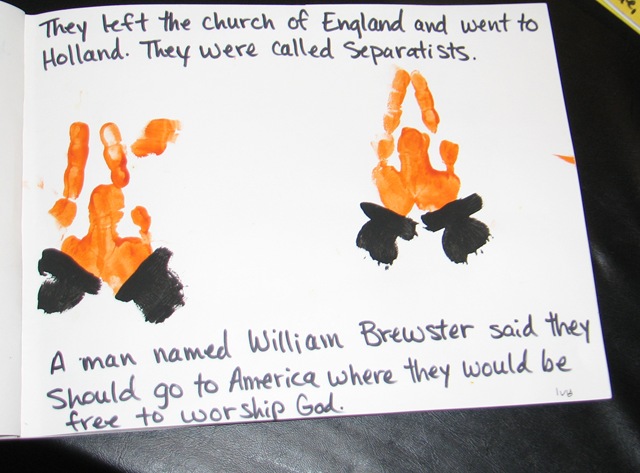 They left the church of England and went to
Holland. They were called Separatists.
A man named William Brewster said they
Should go to America where they would be
free to worship God.